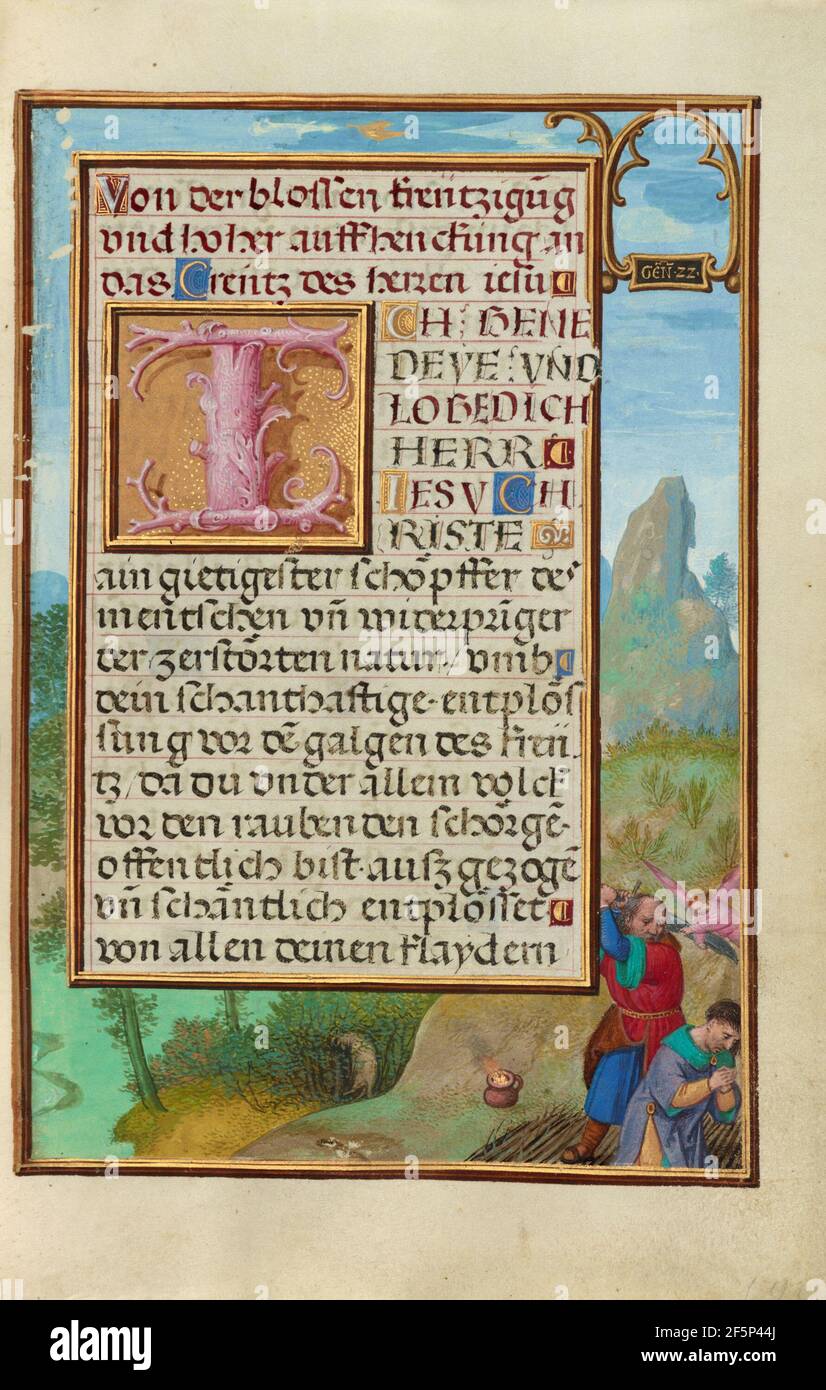 Von der blossen kreützigūg
vnd hoher auffhenckūng an
das Creütz des herren iesu
GEN̄·22·
I
CH BENE
DEYE VND
LOBE DICH
HERR
IESV CH
RISTE
ain gietigester schöpffer des
mentschen vn̄ widerprīger
der zerstörten natur / vmb
dein schanthafftige entplös
sūng vor dē galgen des kreü
tz / da du vnder allem volck
vor den raubenden schörgē
offentlich bist ausz gezogē
vn̄ schäntlich entplösset
von allen deinen klaydern
alamy
alamy
Image ID: 2F5P44J
www.alamy.com